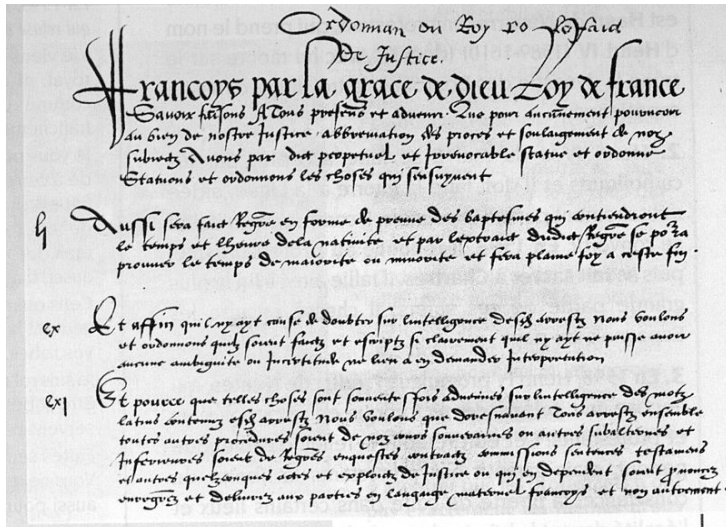 Ordonnan du Roy
De Justice.
Francoys par la grace de dieu Roy de france
Savoir faisons A Tous presens et advenir Que pour aucunement pourveoir
au bien de nostre Justice abbreviation des proces et soulaigement de noz
subiectz Avons par edict perpetuel et Irrevocable statue et ordonne
Statuons et ordonnons les choses qui sensuyvent
Aussi sera faict Regre en forme de preuve des baptesmes qui contiendront
le temps et lheure dela nativite et par lextraict dudict Regre se porra
prouver le temps de maiorite ou minorite et fera plaine foy a ceste fin.
Et affin quil ny ayt cause de doubter sur lintelligence desdz arrestz Nous voulons
et ordonnons quilz soient faictz et escriptz si clairement quil ny ayt ne puisse avoir
aucune ambiguite ou Incertitude ne lieu a en demander Interpretation
exj Et pource que telles choses sont souventesfois advenues sur lintelligence des motz
latins contenuz esdz arrestz Nous voulons que doresnavant Tous arrestz ensemble
toutes autres procedures soient de noz cours souveraines ou autres subalternes et
Inferieures soient de Regres enquestes contractz commissions sentences testamens
et autres quelzconques actes et exploictz de Justice ou qui en dependent soient pnoncez
enregrez et delivrez aux parties en langaige maternel francoys et non autrement.